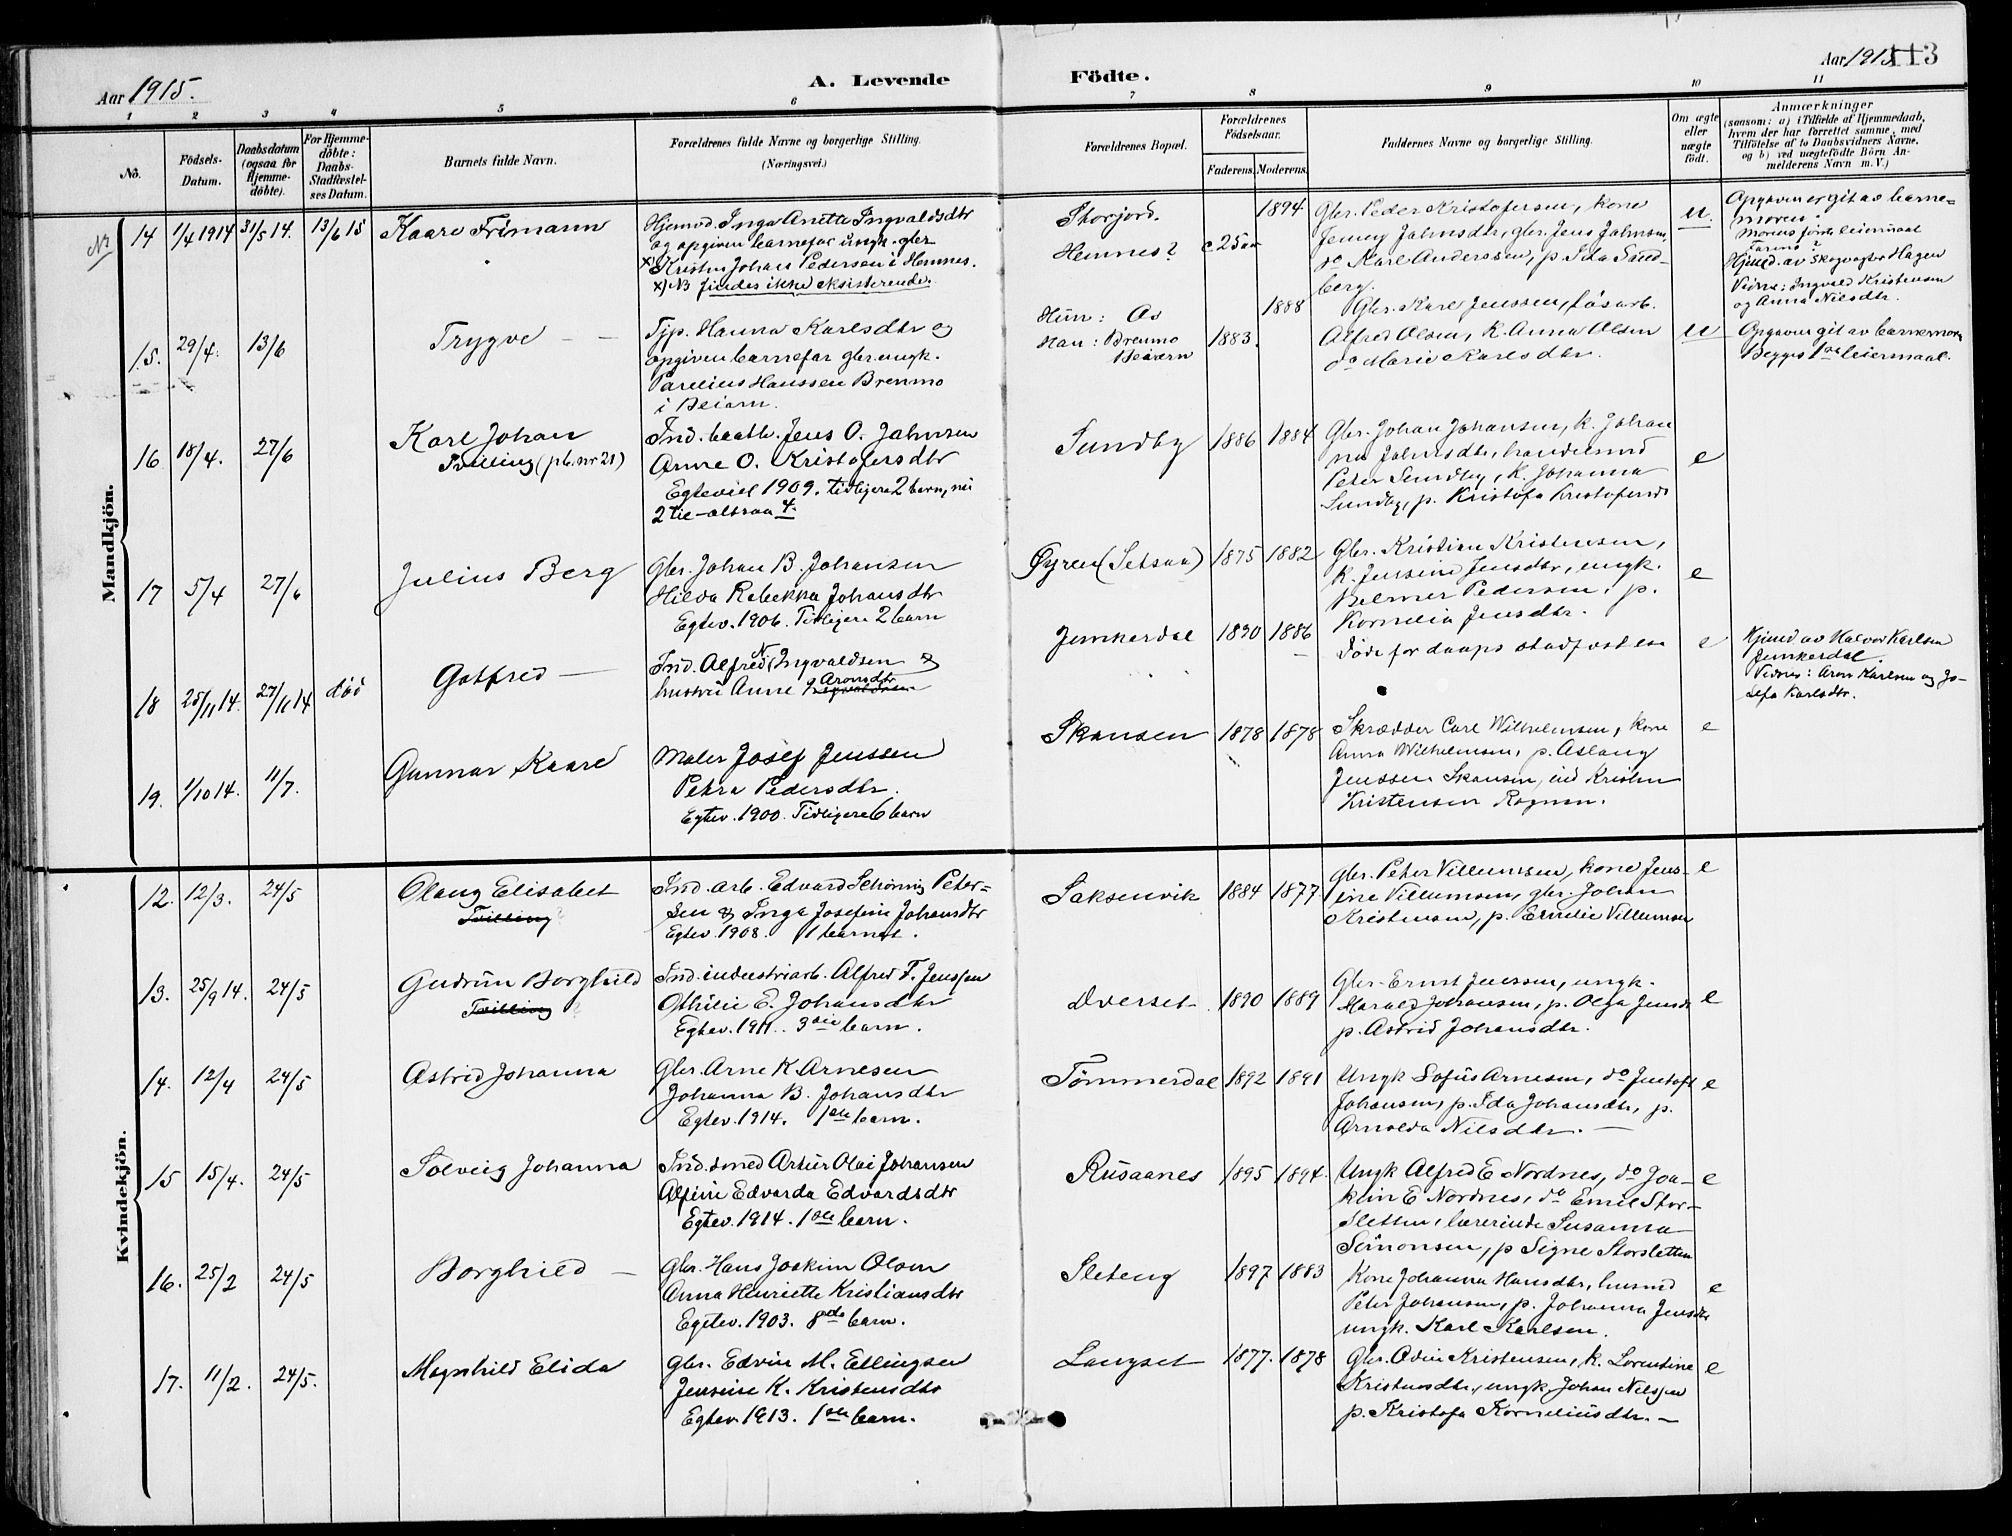 Aar 1915.
A. Levende
Födte.
Aar 1915
113
1 2 3 4 5 6 7 8 9 10 11
No.
Födsels-
Datum.
Daabsdatum
(ogsaa for
Hjemme-
döbte).
For Hjemme-
döbte:
Daabs-
Stadfæstel-
ses Datum.
Barnets fulde Navn.
Forældrenes fulde Navne og borgerlige Stilling.
(Næringsvei.)
Forældrenes Bopæl.
Forældrenes
Födselsaar.
Faderens. Moderens.
Faddernes Navne og borgerlige Stilling.
Om ægte
eller
uægte
födt.
Anmærkninger
(saasom: a) i Tilfælde af Hjemmedaab,
hvem der har forrettet samme, med
Tilföielse af to Daabsvidners Navne,
og b) ved uægtefödte Börn An-
melderens Navn m. V.)
Mandkjön.
Nr 14 1/4 1914 31/5 14. 13/6 15 Kaare Frimann
Hjemv. Inga Anette Ingvaldsdtr
og opgiven barnefar ungk. gbr
x) Kristen Johans Pedersen i Hemnes.
x) NB findes ikke eksisterende.
Storjord.
Hemnes? c 25 aar 1894
Gbr. Peder Kristofersen, kone
Jenny Jahnsdtr, gbr. Jens Jahnsen,
do Karl Anderssen, p. Ida Sand-
berg.
u.
Opgaven er git av barne-
moren.
Morens første leiermaal
Farens?
Hjmd. av Skogvogter Hagen
Vidne: Ingvald Kristensen
og Anna Nilsdtr.
15. 29/4. 13/6 Trygve —
Tjp. Hanna Karlsdtr og
opgiven barnefar gbr. ungk.
Parelius Hanssen Brenmo
i Beiarn.
Hun: Os
Han: Brenmo
Beiarn
1883. 1888
Gbr. Karl Jenssen, løsarb.
Alfred Olsen, k. Anna Olsen
do Marie Karlsdtr.
u
Opgaven git av barnemor.
Begges 1ste leiermaal.
16 18/4. 27/6 Karl Johan
Tvilling (pb. nr 21)
Ind. baatb. Jens O. Jahnsen
Anne O. Kristofersdtr
Egteviet 1909. tidligere 2 barn, nu
2 til – altsaa 4.
Sundby 1886 1884
Gbr. Johan Johansen, k. Johan
na Jahnsdtr, handelsmd
Peter Sundby, k. Johanna
Sundby, p. Kristofa Kristofersd
e
17 5/4 27/6 Julius Berg
Gbr. Johan B. Johansen
Hilda Rebekka Johansdtr
Egtev. 1906. Tidligere 2 barn
Øyren (Setsaa) 1875 1882
Gbr. Kristian Kristensen,
k. Jensine Jensdtr, ungk.
Helmer Pedersen, p.
Kornelia Jensdtr.
e
18 25/11 14. 27/11 14 død Gotfred —
Ind. Alfred N Ingvaldsen &
hustru Anne Aronsdtr
Junkerdal 1890 1886
Døde for daaps stadfestelse
e
Hjmd av Halvor Karlsen
Junkerdal.
Vidnes: Aron Karlsen og Jo-
sefa Karlsdtr.
19. 1/10 14. 11/7. Gunnar Kaare
Maler Josef Jenssen
Petra Pedersdtr.
Egtev. 1900. Tidligere 6 barn
Skansen 1878 1878
Skrædder Carl Wilhelmsen, kone
Anna Wilhelmsen, p. Aslaug
Jenssen Skansen, ind Kristen
Kristensen Rognan.
e
Kvindekjön.
12. 12/3. 24/5 Olaug Elisabet
Tvilling
Ind. arb. Edvard Schöning Peter-
sen & Inga Josefine Johansdtr
Egtev. 1908. 1 barnet.
Saksenvik 1884 1877
gbr. Peter Villumsen, kone Jens-
ine Villumsen, gbr. Johan
Kristensen, p. Emelie Villumsen
e
13. 25/9 14. 24/5 Gudrun Borghild
Tvilling
Ind. industriarb. Alfred F. Jenssen
Othilie E. Johansdtr
Egtev. 1911. 3die barn.
Dverset 1890 1889
Gbr. Ernst Jenssen, ungk.
Harald Johansen, p. Olga Jensdtr
p. Astrid Johansdtr.
e
14. 12/4 24/5 Astrid Johanna
Gbr. Arne K. Arnesen
Johanna B. Johansdtr
Egtev. 1914. 1ste barn.
Tömmerdal 1892 1891
Ungk Lofus Arnesen, do Justoft
Johansen, p. Ida Johansdtr, p.
Arnolda Nilsdtr. —
e
15 15/4. 24/5 Solveig Johanna
Ind. smed Artur Olai Johansen
Alfine Edvarda Edvardsdtr
Egtev. 1914. 1ste barn.
Rusaanes 1895 1894.
Ungk Alfred E Nordnes, do Joa-
kim E Nordnes, do Emil Stor-
sletten, lærerinde Susanna
Simonsen, p Signe Storsletten
e
16. 25/2 24/5 Borghild —
Gbr. Hans Joakim Olsen
Anna Henriette Kristiansdtr
Egtev. 1903. 8de barn.
Sleteng 1897 1883
Kone Johanna Hansdtr, husmd
Peter Johansen, p. Johanna Jensdtr
ungk. Karl Karlsen.
e
17. 11/2. 24/5. Magnhild Elida
Gbr. Edvin M. Ellingsen
Jensine K. Kristensdtr
Egtev. 1913. 1ste barn.
Langset 1877. 1878
Gbr. Odin Kristensen, k. Lorentine
Kristensdtr, ungk Johan Nilssen
p. Kristofa Korneliusdtr. —
e